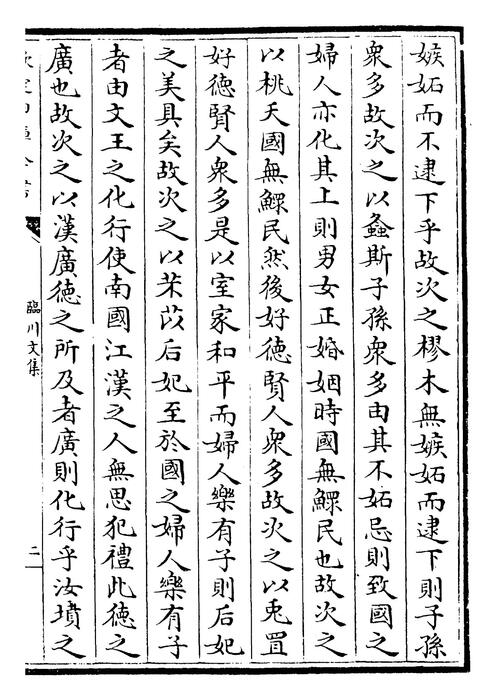 嫉妬而不逮下乎故次之樛木無嫉妬而逮下則子孫
衆多故次之以螽斯子孫衆多由其不妬忌則致國之
婦人亦化其上則男女正婚姻時國無鰥民也故次之
以桃夭國無鰥民然後好德賢人衆多故次之以兎罝
好德賢人衆多是以室家和平而婦人樂有子則后妃
之美具矣故次之以芣苢后妃至於國之婦人樂有子
者由文王之化行使南國江漢之人無思犯禮此德之
廣也故次之以漢廣德之所及者廣則化行乎汝墳之
欽定四庫全書
臨川文集
二